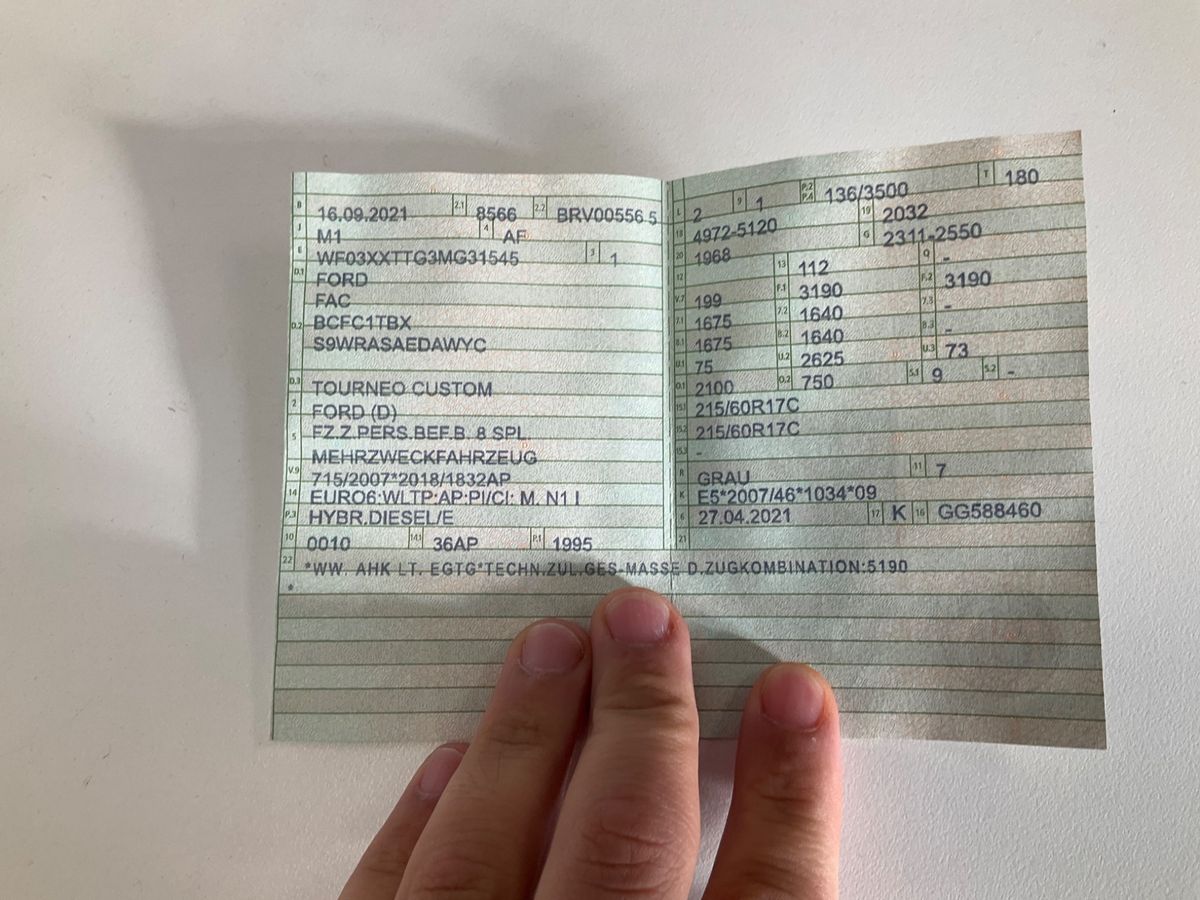 B 16.09.2021 2.1 8566 2.2 BRV00556 5
J M1 4 AF
E WF03XXTTG3MG31545 3 1
D.1 FORD
FAC
D.2 BCFC1TBX
S9WRASAEDAWYC
D.3 TOURNEO CUSTOM
2 FORD (D)
5 FZ.Z.PERS.BEF.B. 8 SPL
MEHRZWECKFAHRZEUG
V.9 715/2007*2018/1832AP
14 EURO6;WLTP;AP;PI/CI; M, N1 I
P.3 HYBR.DIESEL/E
10 0010 14.1 36AP P.1 1995
L 2 9 1 P.2 P.4 136/3500 T 180
18 4972-5120 19 2032
20 1968 G 2311-2550
12 13 112 Q -
V.7 199 F.1 3190 F.2 3190
7.1 1675 7.2 1640 7.3 -
8.1 1675 8.2 1640 8.3 -
U.1 75 U.2 2625 U.3 73
O.1 2100 O.2 750 S.1 9 S.2 -
15.1 215/60R17C
15.2 215/60R17C
15.3 -
R GRAU 11 7
K E5*2007/46*1034*09
6 27.04.2021 17 K 16 GG588460
21
22 *WW. AHK LT. EGTG*TECHN.ZUL.GES-MASSE D.ZUGKOMBINATION:5190
*